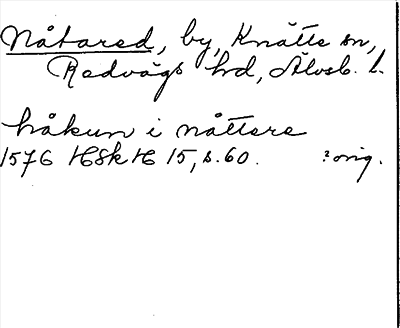 Nåtared, by, Knätte sn,
Redvägs hd, Älvsb. l.
håkun i nåttere
1576 HSkH 15, s. 60. ? orig.